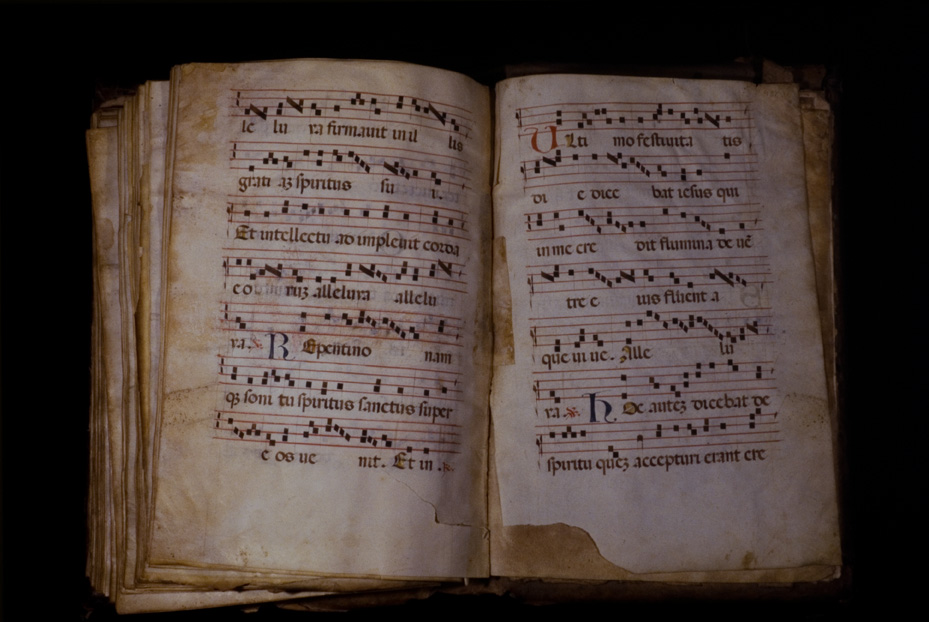 le lu ya firmavit in il lis
grati as spiritus su i.
Et intellectu ad implevit corda
eo ruz alleluya allelu
ya. Repentino nam
qz soni tu spiritus sanctus super
e os ve nit. Et in .
Ulti mo festivita tis
di e dice bat iesus qui
in me cre dit flumina de vē
tre e ius fluent a
que vi ve. Alle lu
ya Hoc autez dicebat de
spiritu quez accepturi erant cre